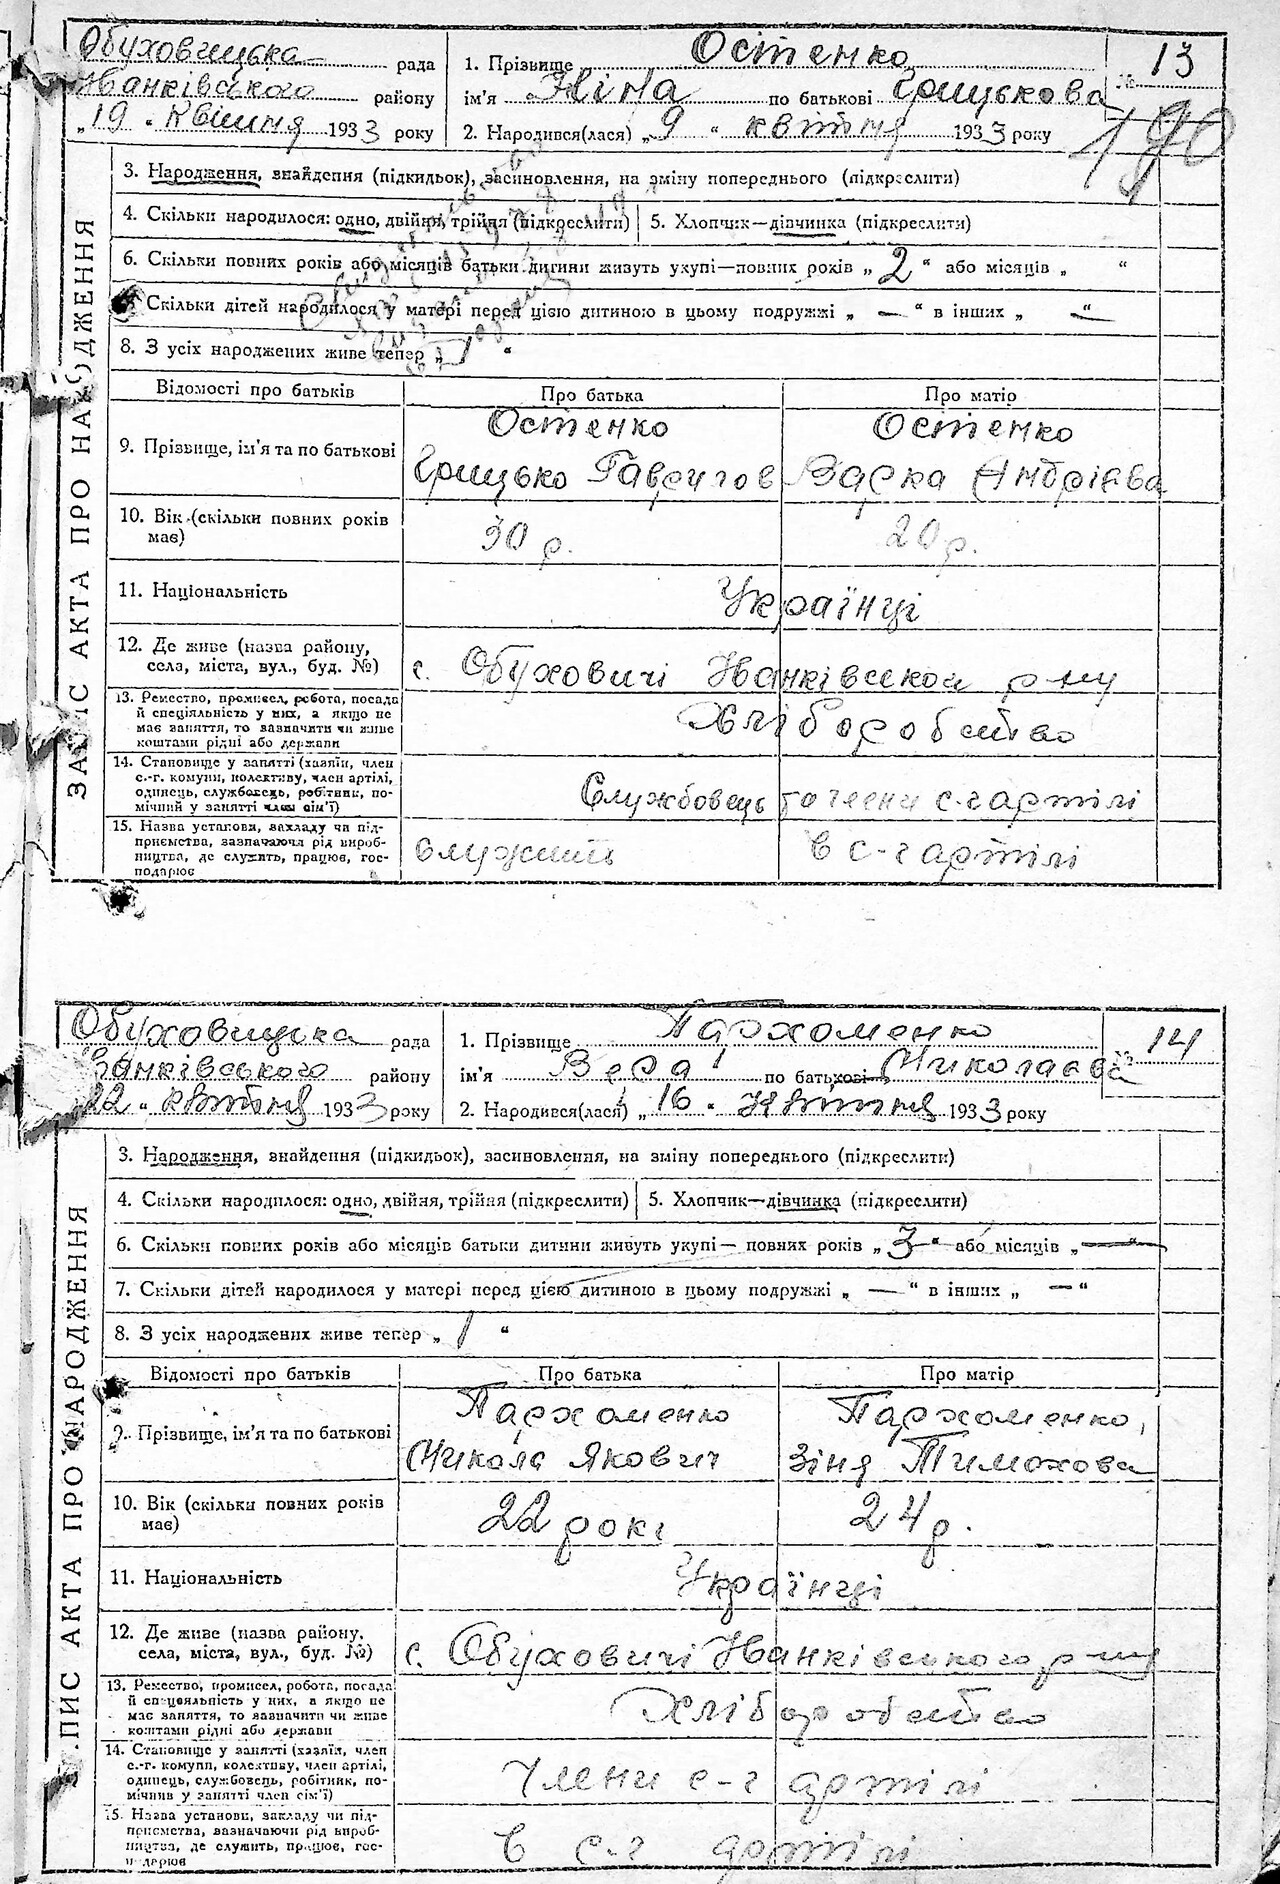 Обуховицька рада
Іванківського району
„19" Квітня 1933 року
1. Прізвище Остенко
ім'я Ніна по батькові Грицькова
2. Народився(лася) „9" квітня 1933 року
№ 13
190
ЗАПИС АКТА ПРО НАРОДЖЕННЯ
3. Народження, знайдення (підкидьок), засиновлення, на зміну попереднього (підкреслити)
4. Скільки народилося: одно, двійня, трійня (підкреслити) 5. Хлопчик—дівчинка (підкреслити)
6. Скільки повних років або місяців батьки дитини живуть укупі—повних років „2" або місяців „ "
Скільки дітей народилося у матері перед цією дитиною в цьому подружжі „—" в інших „—"
8. З усіх народжених живе тепер „1"
Відомості про батьків Про батька Про матір
9. Прізвище, ім'я та по батькові
Остенко Остенко
Грицько Гаврилов Варка Андріїва
10. Вік (скільки повних років
має)
30 р. 20 р.
11. Національність Українці
12. Де живе (назва району,
села, міста, вул., буд. №)
с. Обуховичі Іванківського р-ну
13. Ремество, промисел, робота, посада
й спеціяльність у них, а якщо не
має заняття, то зазначити чи живе
коштами рідні або держави
Хліборобство
14. Становище у занятті (хазяїн, член
с.-г. комуни, колективу, член артілі,
одинець, службовець, робітник, по-
мічний у занятті член сім'ї)
Службовець та члени с-г артілі
15. Назва установи, закладу чи під-
приємства, зазначаючи рід вироб-
ництва, де служить, працює, гос-
подарює
служить в с-г артілі
Обуховицька рада
Іванківського району
22 " квітня 1933 року
1. Прізвище Пархоменко
ім'я Вера по батькові Миколаєва
2. Народився(лася) „16" Квітня 1933 року
№ 14
ПИС АКТА ПРО НАРОДЖЕННЯ
3. Народження, знайдення (підкидьок), засиновлення, на зміну попереднього (підкреслити)
4. Скільки народилося: одно, двійня, трійня (підкреслити) 5. Хлопчик—дівчинка (підкреслити)
6. Скільки повних років або місяців батьки дитини живуть укупі— повних років „3" або місяців „—"
7. Скільки дітей народилося у матері перед цією дитиною в цьому подружжі „—" в інших „—"
8. З усіх народжених живе тепер „1"
Відомості про батьків Про батька Про матір
9. Прізвище, ім'я та по батькові
Пархоменко Пархоменко,
Микола Якович Зіня Тимохова
10. Вік (скільки повних років
має)
22 рокі 24 р.
11. Національність Українці
12. Де живе (назва району,
села, міста, вул., буд. №)
с. Обуховичі Іванківського р-ну
13. Ремество, промисел, робота, посада
й спеціяльність у них, а якщо не
має заняття, то зазначити чи живе
коштами рідні або держави
Хліборобство
14. Становище у занятті (хазяїн, член
с.-г. комуни, колективу, член артілі,
одинець, службовець, робітник, по-
мічник у занятті член сім'ї)
Члени с-г артілі
15. Назва установи, закладу чи під-
приємства, зазначаючи рід вироб-
ництва, де служить, працює, гос-
подарює
в с-г артілі